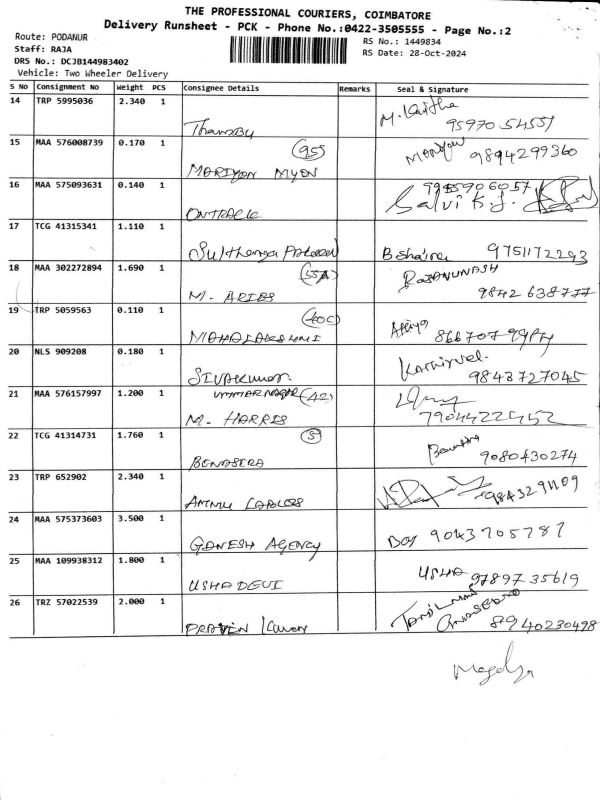 THE PROFESSIONAL COURIERS, COIMBATORE
Delivery Runsheet - PCK - Phone No.:0422-3505555 - Page No.:2
Route: PODANUR
Staff: RAJA
DRS No.: DCJB144983402
Vehicle: Two Wheeler Delivery
RS No.: 1449834
RS Date: 28-Oct-2024
S No Consignment No Weight PCS Consignee Details Remarks Seal & Signature
14 TRP 5995036 2.340 1
15 MAA 576008739 0.170 1 955
MARIYON MYON 9894299360
16 MAA 575093631 0.140 1
ONTRACK Selvi K.J.
17 TCG 41315341 1.110 1
9751172293
18 MAA 302272894 1.690 1 55A
M. ARIES 9842638777
19 TRP 5059563 0.110 1 400C
MAHALAKSHMI
20 NLS 909208 0.180 1
SIVAKUMAR 9843727045
21 MAA 576157997 1.200 1 42
M. HARRIS
22 TCG 41314731 1.760 1
BENASIRA 9080430274
23 TRP 652902 2.340 1
24 MAA 575373603 3.500 1
GANESH AGENCY 9043705787
25 MAA 109938312 1.800 1
USHA DEVI USHA 9789735619
26 TRZ 57022539 2.000 1
PRAVEN 8940230498